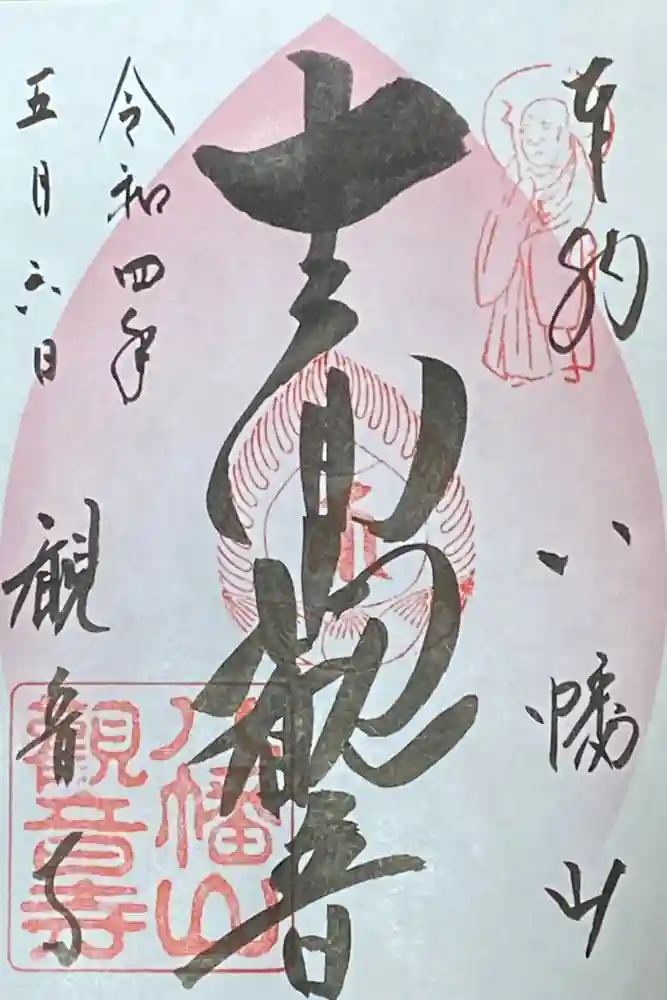 奉納
八幡山
十一面観音
令和四年
五月六日
観音寺
八幡山
觀音寺